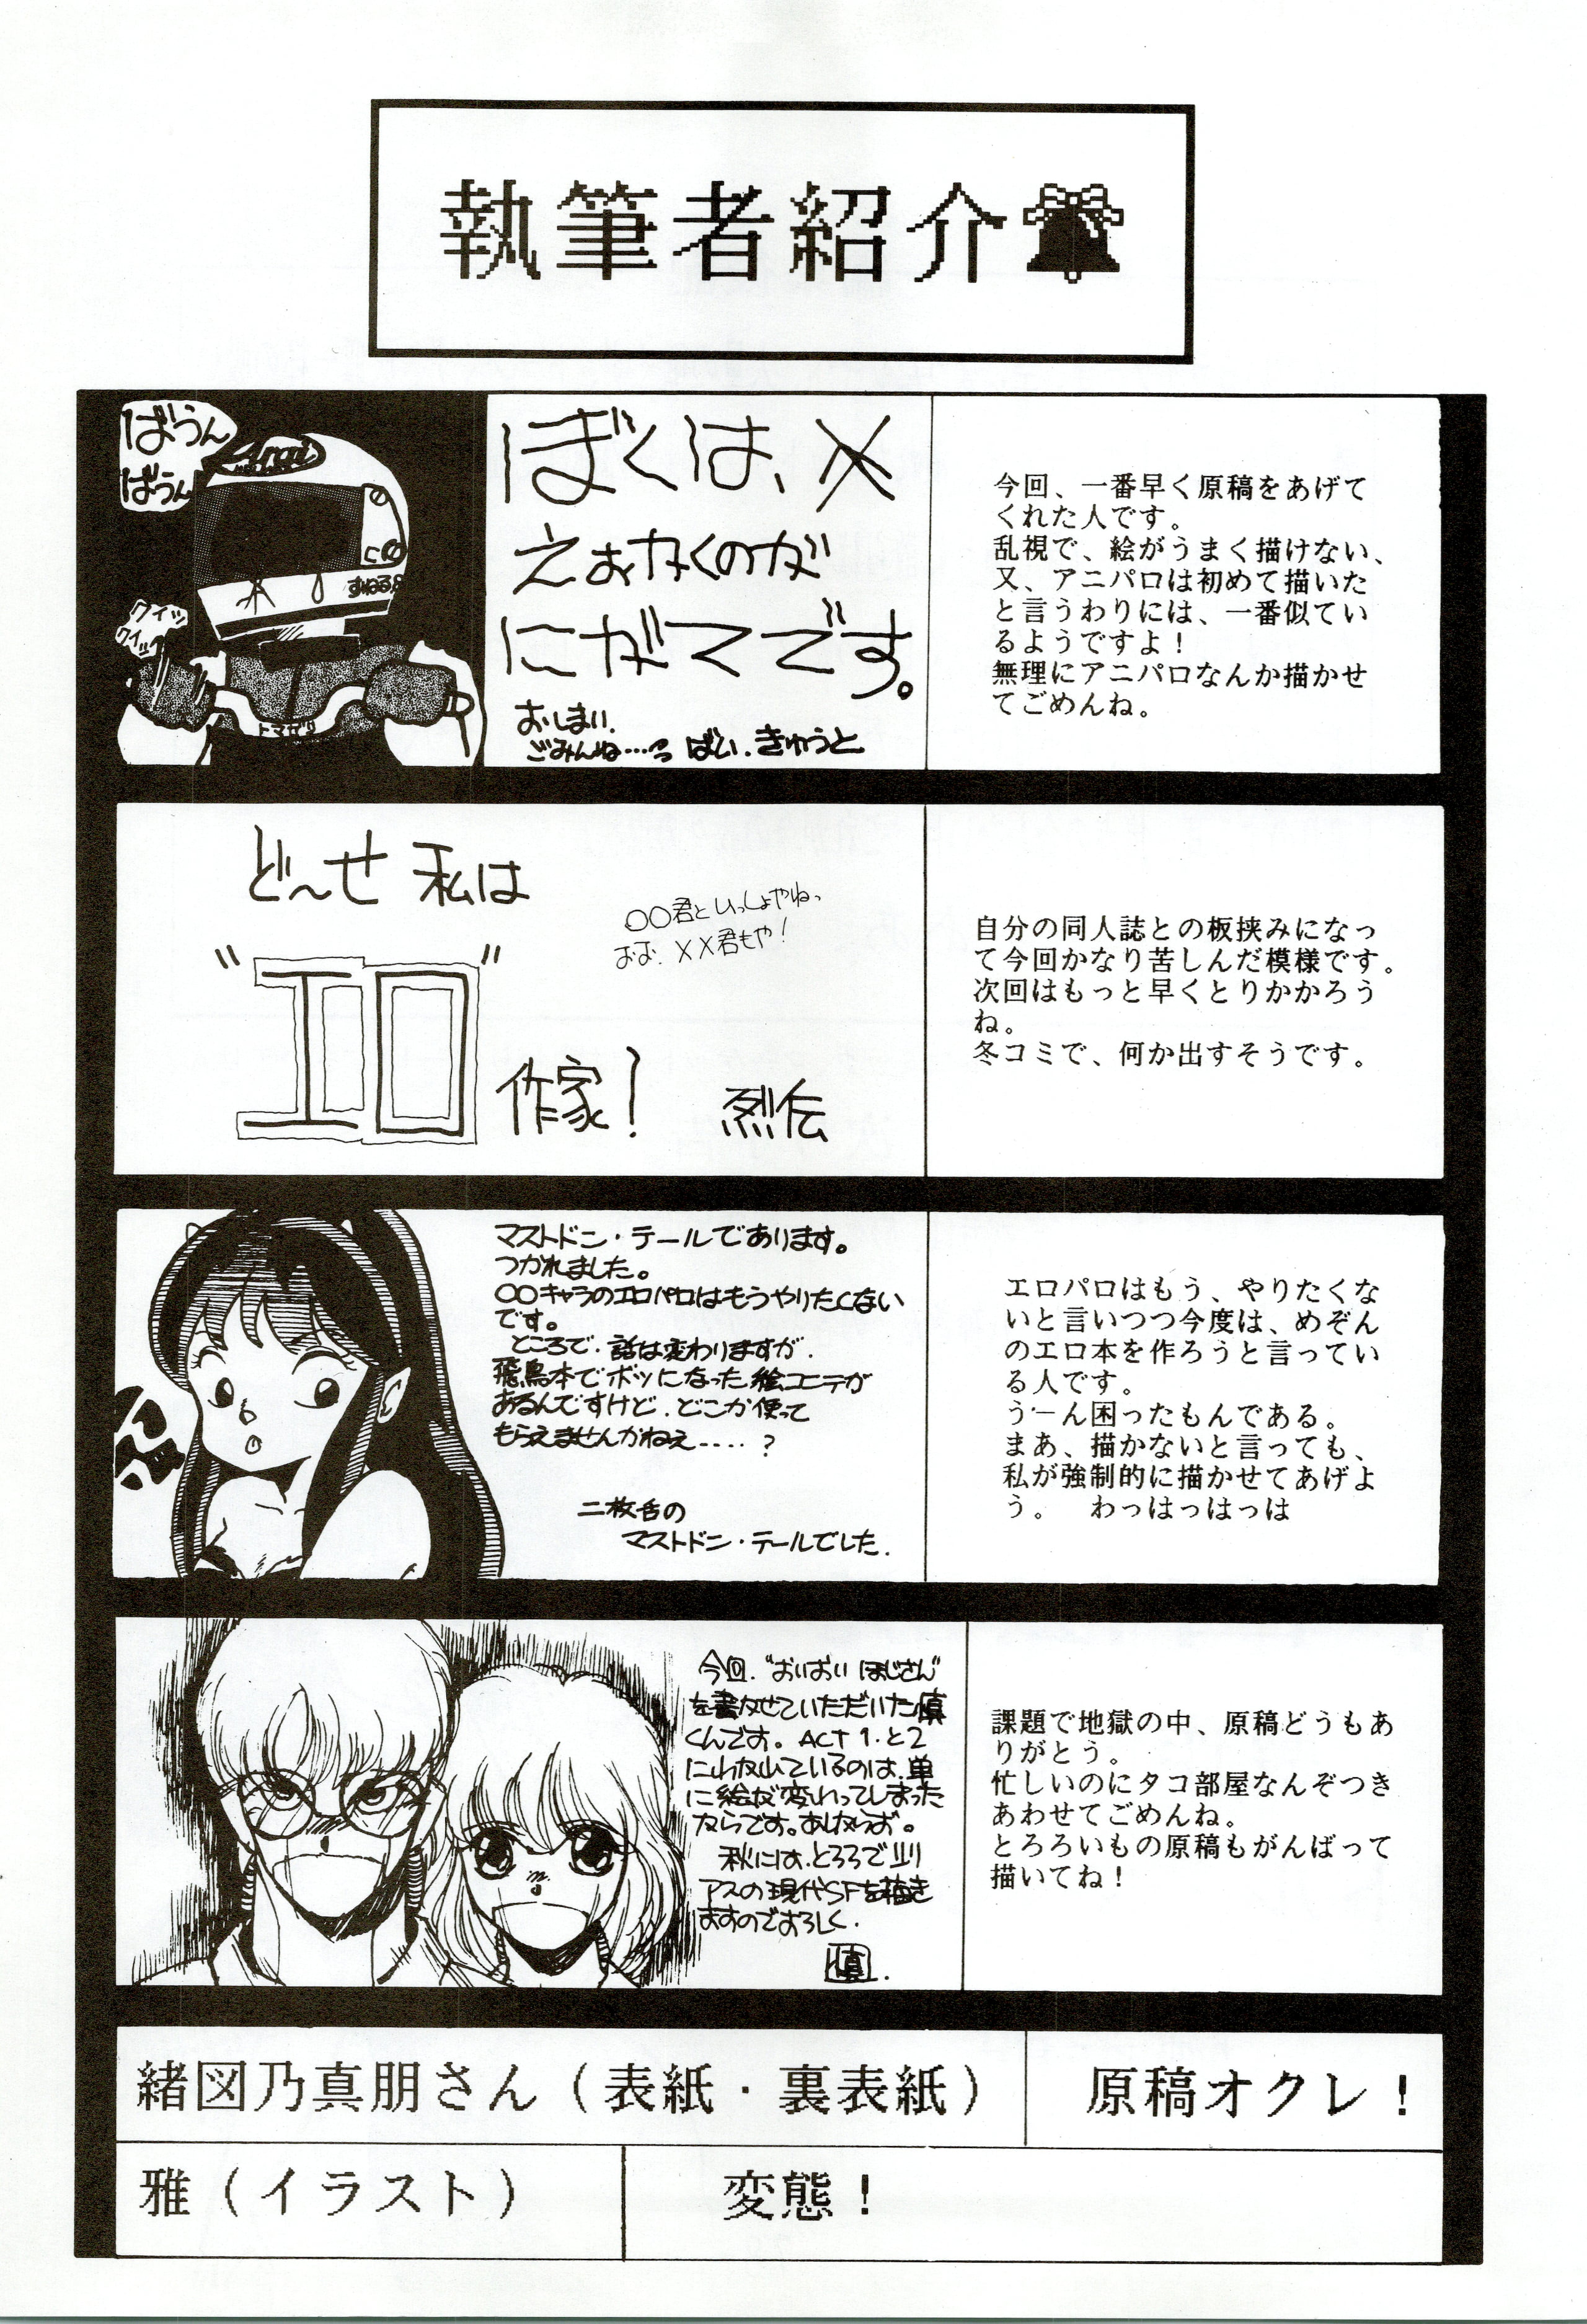 執筆者紹介
ばうん
ばうん
Arai
すねる
クイッ
クイッ
トマゼタ
ぼくは、
えおかくのが
にがてです。
おしまい.
ごみんね…っ ばい.きゅうと
今回、一番早く原稿をあげて
くれた人です。
乱視で、絵がうまく描けない、
又、アニパロは初めて描いた
と言うわりには、一番似てい
るようですよ！
無理にアニパロなんか描かせ
てごめんね。
ど〜せ 私は
〇〇君といっしょやねっ
おお、××君もや！
"エロ"
作家！ 烈伝
自分の同人誌との板挟みになっ
て今回かなり苦しんだ模様です。
次回はもっと早くとりかかろう
ね。
冬コミで、何か出すそうです。
マストドン・テールであります。
つかれました。
〇〇キャラのエロパロはもうやりたくない
です。
ところで、話は変わりますが、
飛鳥本でボツになった絵コンテが
あるんですけど、どこか使って
もらえませんかねぇ....？
二枚舌の
マストドン・テールでした.
エロパロはもう、やりたくな
いと言いつつ今度は、めぞん
のエロ本を作ろうと言ってい
る人です。
うーん困ったもんである。
まあ、描かないと言っても、
私が強制的に描かせてあげよ
う。 わっはっはっは
今回、"おいおい ほじさん"
を書かせていただいた慎
くんです。ACT 1.と2
に分かれているのは、単
に絵が変わってしまった
からです。あしからず。
秋には、とろろでシリ
アスの現代SFを描き
ますのでよろしく.
慎.
課題で地獄の中、原稿どうもあ
りがとう。
忙しいのにタコ部屋なんぞつき
あわせてごめんね。
とろろいもの原稿もがんばって
描いてね！
緒図乃真朋さん（表紙・裏表紙）
原稿オクレ！
雅（イラスト）
変態！